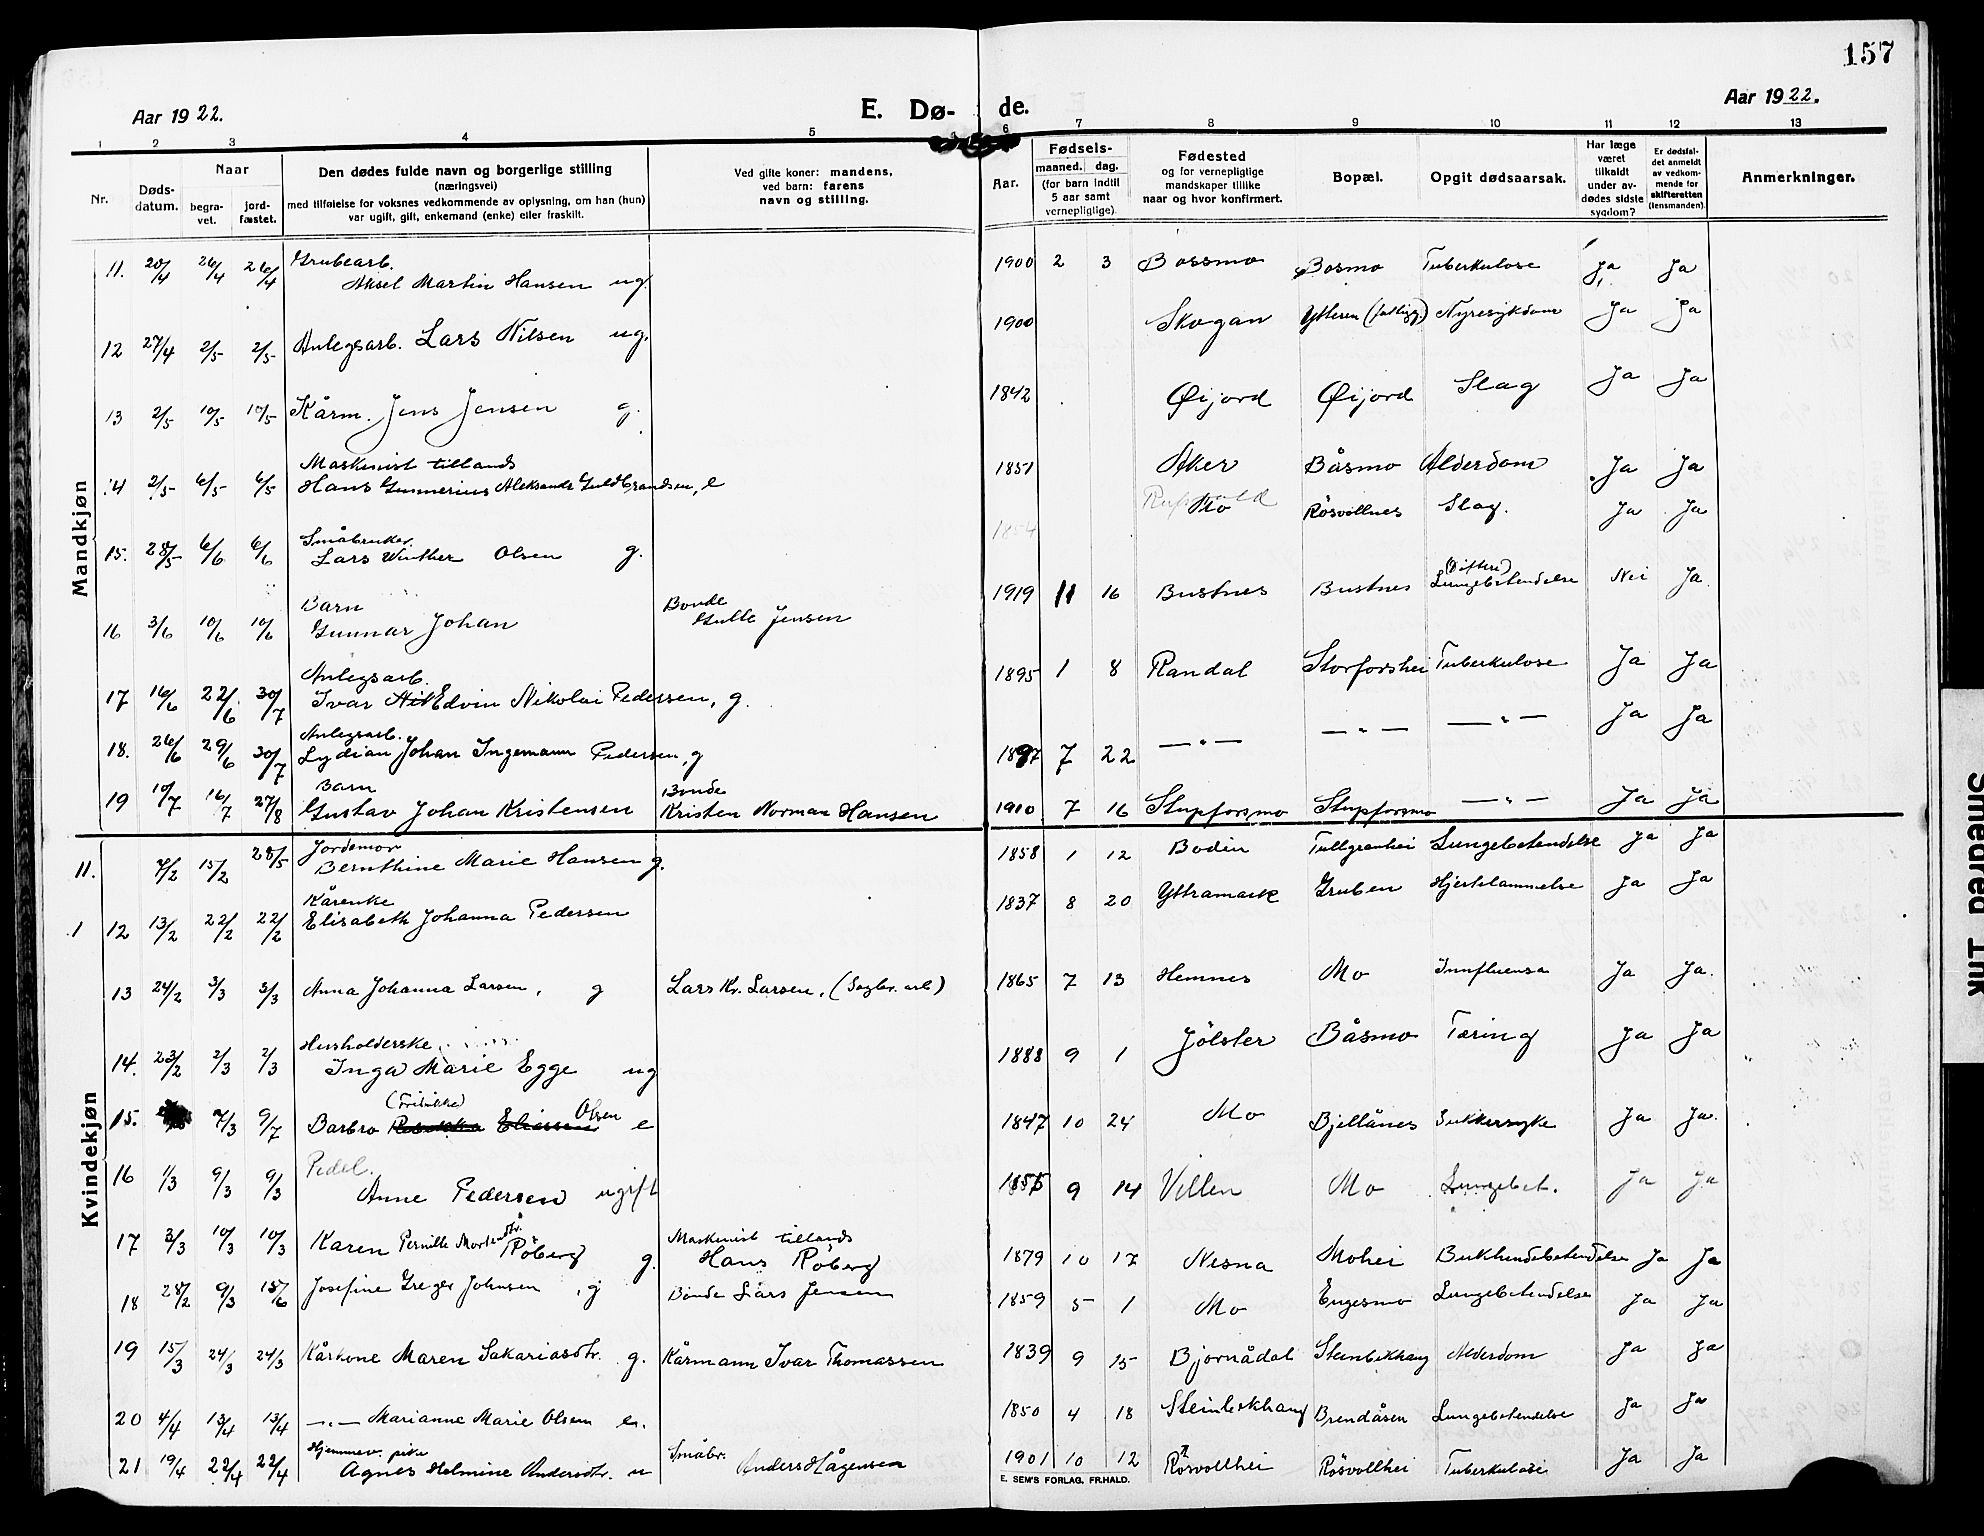 157
Aar 1922.
E. Dø- de.
Aar 1922.
1 2 3 4 5 6 7 8 9 10 11 12 13
Nr.
Døds-
datum.
Naar
begra-
vet.
jord-
fæstet.
Den dødes fulde navn og borgerlige stilling
(næringsvei)
med tilføielse for voksnes vedkommende av oplysning, om han (hun)
var ugift, gift, enkemand (enke) eller fraskilt.
Ved gifte koner: mandens,
ved barn: farens
navn og stilling.
Aar.
Fødsels-
maaned. dag.
(for barn indtil
5 aar samt
vernepligtige).
Fødested
og for vernepligtige
mandskaper tillike
naar og hvor konfirmert.
Bopæl.
Opgit dødsaarsak.
Har læge
været
tilkaldt
under av-
dødes sidste
sygdom?
Er dødsfal-
det anmeldt
av vedkom-
mende for
skifteretten
(lensmanden).
Anmerkninger.
Mandkjøn
11. 20/4 26/4 26/4 Grubearb. Aksel Martin Hansen ug. 1900 2 3 Bossmo Bosmo Tuberkulose Ja Ja
12 27/4 2/5 2/5 Anlegsarb. Lars Nilsen ug. 1900 Skogan Ytteren Nyresykdom Ja Ja
13 2/5 10/5 10/5 Kårm. Jens Jensen g. 1842 Øijord Øijord Slag Ja Ja
14 2/5 6/5 6/5 Maskinist tillands Hans Gunnerius Aleksandr Guldbrandsen, e 1851 Aker Båsmo Alderdom Ja Ja
15. 28/5 6/6 6/6 Småbruker Lars Winther Olsen g. 1854 Mo Røsvollnes Slag. Ja Ja
16 3/6 10/6 10/6 Barn Gunnar Johan Bonde Gulle Jensen 1919 11 16 Bustnes Bustnes (Difteri) Lungebetendelse Nei Ja
17 16/6 22/6 30/7 Anlegsarb. Ivar Edvin Nikolai Pedersen, g. 1895 1 8 Randal Storforshei Tuberkulose Ja Ja
18. 26/6 29/6 30/7 Anlegsarb. Lydian Johan Ingemann Pedersen, g 1897 7 22 — " — — " — — " — Ja Ja
19 10/7 16/7 27/8 Barn Gustav Johan Kristensen Bonde Kristen Norman Hansen 1910 7 16 Stupforsmo Stupforsmo — " — Ja Ja
Kvindekjøn
11. 7/2 15/2 28/5 Jordemor Bernthine Marie Hansen g. 1858 1 12 Bodin Tullgrenhei Lungebetendelse Ja Ja
1 12 13/2 22/2 22/2 Kårenke Elisabeth Johanna Pedersen 1837 8 20 Yttramark Gruben Hjertelammelse Ja Ja
13 24/2 3/3 3/3 Anna Johanna Larsen, g Lars Kr. Larsen, (Sagbr. arb) 1865 7 13 Hemnes Mo Innfluensa Ja Ja.
14. 23/2 2/3 2/3 Husholderske Inga Marie Egge ug 1888 9 1 Jölster Båsmo Tæring Ja Ja
15. 7/3 9/7 Barbro Olsen e 1847 10 24 Mo Bjellånes Sukkersyke Ja Ja.
16 1/3 9/3 9/3 Pedel. Anne Pedersen ugift 9 14 Villen Mo Lungebet. Ja Ja
17 3/3 10/3 10/3 Karen Pernille Mortensdtr. Röberg g. Maskinist tillands Hans Röberg 1879 10 17 Nesna Mohei Bukhindebetendelse Ja Ja
18 28/2 9/3 18/6 Josefine Greger Johnsen, g Bonde Lars Jensen 1859 5 1 Mo Engesmo Lungebetendelse Ja Ja
19 15/3 24/3 24/3 Kårkone Maren Sakariasdtr. g. Kårmann Ivar Thomassen 1839 9 15 Bjornådal Steinbekkhaug Alderdom Ja Ja
20 4/4 13/4 13/4 — " — Marianne Marie Olsen e. 1850 4 18 Steinbekkhaug Brendåsen Lungebetendelse Ja Ja
21 19/4 22/4 22/4 Hjemmev. pike Agnes Helmine Andersdtr. u Småbr. Anders Hågensen 1901 10 12 Røsvollhei Røsvollhei Tuberkulose Ja Ja
E. SEM'S FORLAG. FR.HALD.